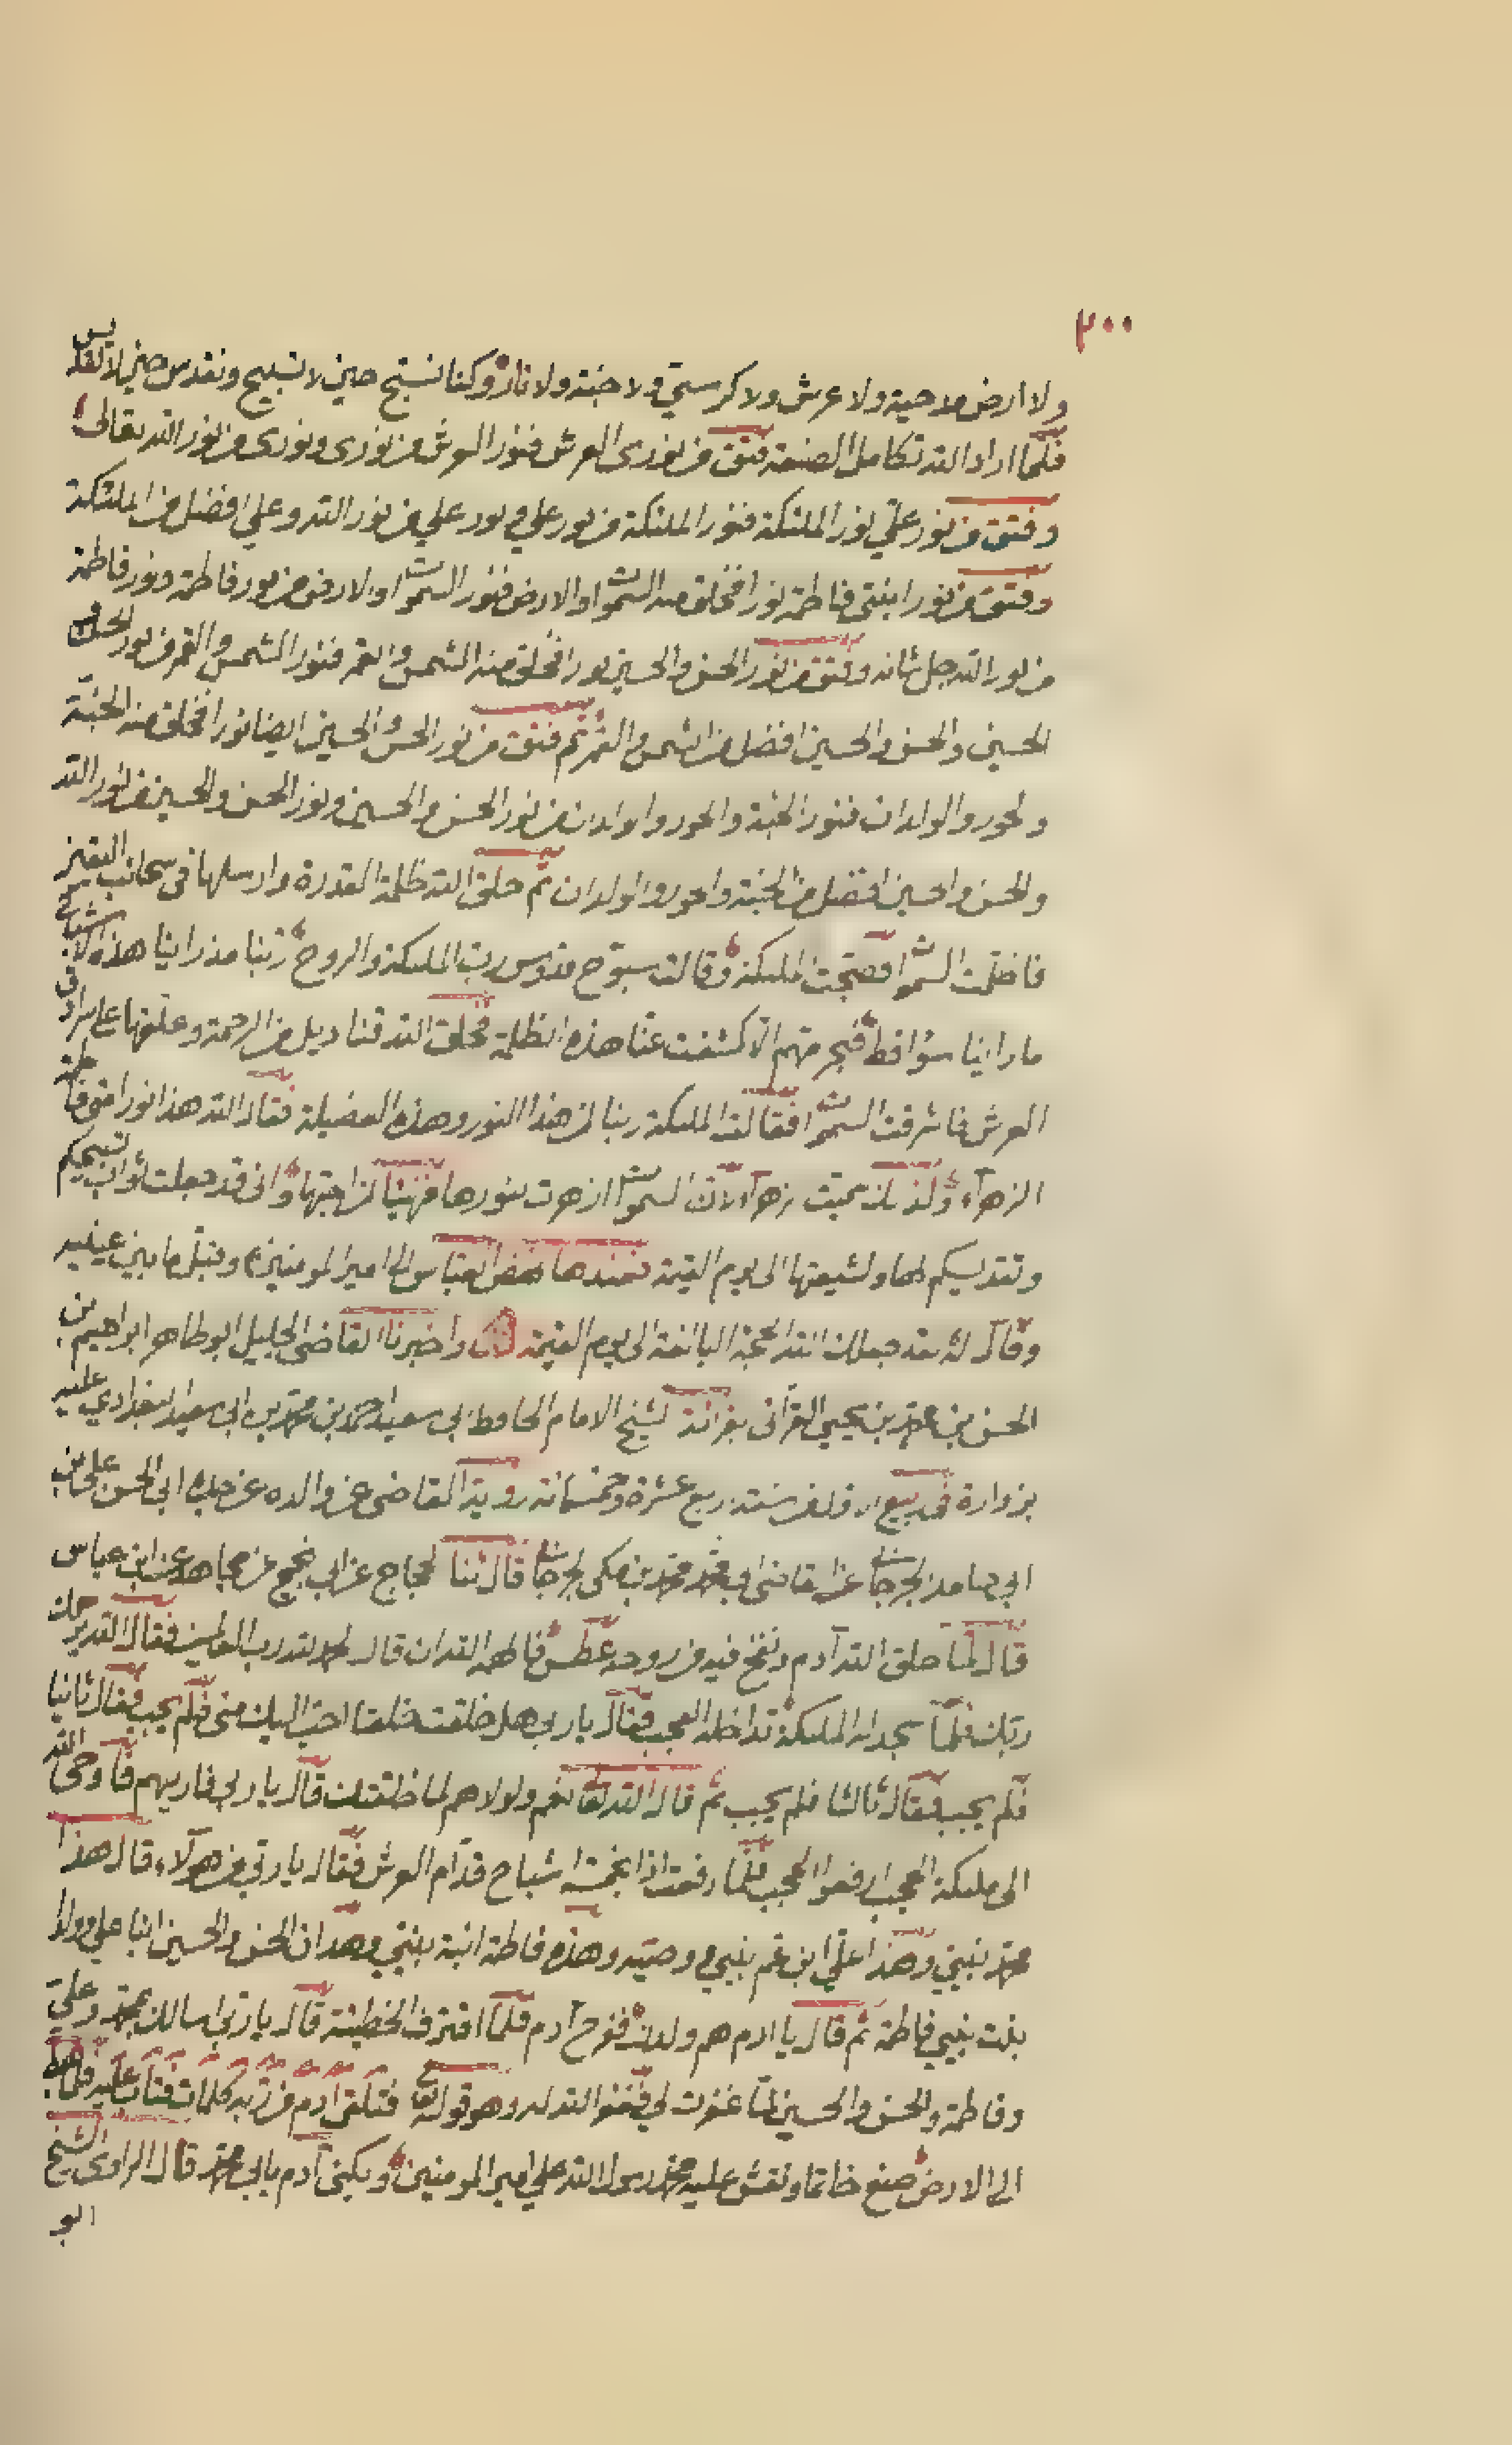 ٣٠٠
ولا ارض مدحية ولا عرش ولا كرسي ولا جنة ولا نار وكنا نسبح حين لا تسبيح ونقدس حين لا تقديس
فلما اراد الله تكامل الصنعة فتق من نوري العرش فنور العرش من نوري ونوري من نور الله تعالى
وفتق من نور علي نور الملئكة فنور الملئكة من نور علي ونور علي من نور الله وعلي افضل من الملئكة
وفتق من نور ابنتي فاطمة نورا فخلق منه السموات والارض فنور السموات والارض من نور فاطمة ونور فاطمة
من نور الله جل شانه وفتق من نور الحسن والحسين نورا فخلق منه الشمس والقمر فنور الشمس والقمر من نور الحسن و
الحسين والحسن والحسين افضل من الشمس والقمر ثم فتق من نور الحسن والحسين ايضا نورا فخلق منه الجنة
والحور والولدان فنور الجنة والحور والولدان من نور الحسن والحسين ونور الحسن والحسين من نور الله
والحسن والحسين افضل من الجنة والحور والولدان ثم خلق الله ظلمة القدرة وارسلها في سحائب
فاظلمت السموات فضجت الملئكة وقالت سبوح قدوس رب الملئكة والروح ربنا مذ راينا هذه الاشباح
ما راينا سؤا قط فبحرمتهم الا كشفت عنا هذه الظلمة فخلق الله قناديل من الرحمة وعلقها على سرادق
العرش فاشرقت السموات فقالت الملئكة ربنا لمن هذا النور وهذه الفضيلة فقال الله هذا نور امتي فاطمة
الزهرآء ولذلك سميت زهرآء لان السموات ازهرت بنورها فهنيئا لمن احبها واني قد جعلت ثواب تسبيحكم
وتقديسكم لها ولشيعتها الى يوم القيمة فعندها نهض العباس الى امير المومنين وقبل ما بين عينيه
وقال له لقد جعلك الله الحجة البالغة الى يوم القيمة قال واخبرنا القاضي الجليل ابو طاهر ابراهيم بن
الحسن بن محمد بن يحيى القرآني بقرائة الشيخ الامام الحافظ ابي سعيد احمد بن محمد بن ابي سعيد البغدادي عليه
بزوارة في ربيع الاول من سنة اربع عشرة وخمسمائة رواية القاضي عن والده عن جده ابي الحسن علي بن
ابي حامد الجرجاني عن القاضي ابي محمد محمد بن مكي الجرجاني قال ثنا الحجاج عن ابي نجيح عن مجاهد عن ابن عباس
قال لما خلق الله آدم ونفخ فيه من روحه عطس فالهمه الله ان قال الحمد لله رب العالمين فقال الله يرحمك
ربك فلما سجد له الملئكة تداخله العجب فقال يا رب هل خلقت خلقا احب اليك مني فلم يجب فقال ثانيا
فلم يجب فقال ثالثا فلم يجب ثم قال الله تعا نعم ولولاهم لما خلقتك قال يا رب فارنيهم فاوحى الله
الى ملئكة الحجب ارفعوا الحجب فلما رفعت اذا بخمسة اشباح قدام العرش فقال يا رب من هولآء قال هذا
محمد نبيي وهذا علي ابن عم نبيي ووصيه وهذه فاطمة ابنة نبيي وهذان الحسن والحسين ابنا علي وولدا
بنت نبيي فاطمة ثم قال يا ادم هم ولدك ففرح آدم فلما اقترف الخطيئة قال يا رب اسالك بمحمد وعلي
وفاطمة والحسن والحسين لما غفرت لي فغفر الله له وهو قوله تعا فتلقى آدم من ربه كلمات فتاب عليه فلما هبط
الى الارض صنع خاتما ونقش عليه محمد رسول الله علي امير المومنين ويكنى آدم بابي محمد قال الراوي الشيخ
ابو